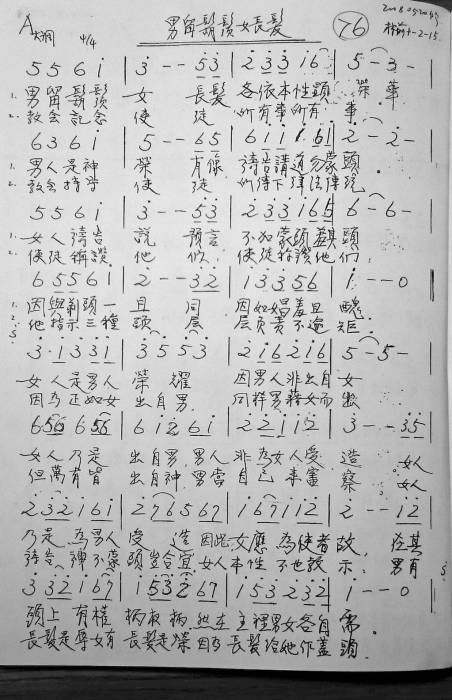 男留鬍鬚女長髮
76
A大調 4/4
5 5 6 i | 3 - - 53 | 2 33 16 | 5 - 3 -
1. 男留鬍鬚 女 長髮 各依本性顯 榮華
2. 教会記念 使徒 所有事所有 事
6 3 6 i | 5 - - 65 | 6 1 1 1 61 | 2 - 2 -
1. 男人是神 榮 有像 禱告講道勿蒙頭
2. 教会持守 使徒 所傳下
5 5 6 i | 3 - - 53 | 2 33 165 | 6 - 6 -
1. 女人禱告 說 預言 不如蒙頭蓋其頭
2. 使徒稱讚 他 們 使徒稱讚他們
6 55 6 i | 2 - - 32 | 1 3 3 56 | 1 - - 0
1. 因與剃頭一 且 同 因如娼羞且 醜
2. 他指示三種 頭 層 层負責不逾 矩
3 · 1 3 3 1 | 3 5 5 3 | 2 16 2 16 | 5 - 5 -
女人是男人 榮耀 因男人非出自 女
因為正如女 出自男 同樣男藉女而 出
656 6 56 | 6 i 2 6 i | 2 2 1 1 2 | 3 - - 35
女人乃是 出自男,男人 非為女人受 造 女人
但萬有皆 出自神,男當 自己 察 女人
2 32 2 16 1 | 2 76 5 67 | 1 67 1 12 | 2 - - 12
乃是為男人 受 造 因此女應 為使者故, 在其
禱告 神不蒙 頭豈合宜 女人本性 不也設 示: 男有
3 32 2 1 67 | 1 53 32 67 | 1 5 3 2 32 | 1 - - 0
頭上有權 柄 柄 在主裡男女各自 需
長髮是辱女有 長髮是榮 因為長髮給她作蓋 頭.